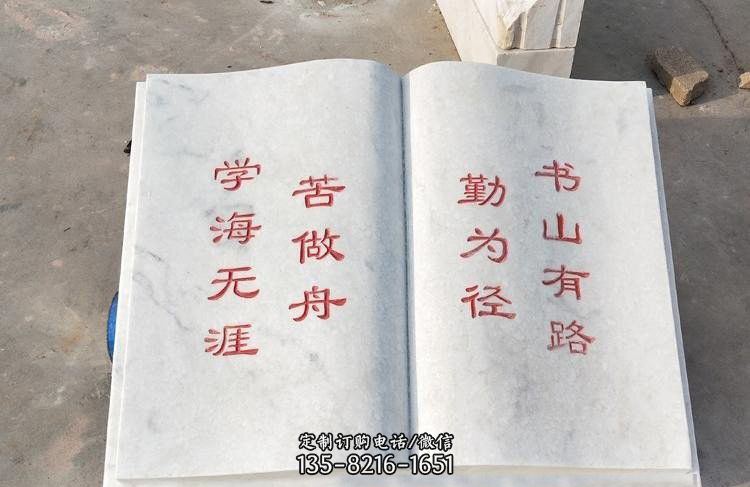 书山有路
勤为径
学海无涯
苦做舟
定制订购电话/微信
135-8216-1651